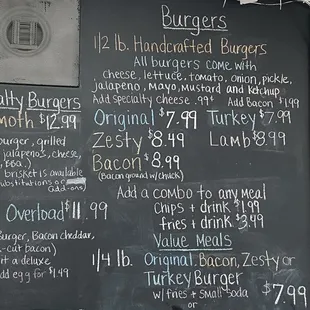 Burgers
1/2 lb. Handcrafted Burgers
All burgers come with
cheese, lettuce, tomato, onion, pickle,
jalapeno, Mayo, mustard and ketchup
Add specialty cheese .99¢ Add Bacon $1.49
Original $7.99 Turkey $7.99
Zesty $8.49 Lamb $8.99
Bacon $8.99
(Bacon ground w/ chuck)
Add a combo to any meal
Chips + drink $1.99
fries + drink $3.99
Value Meals
1/4 lb. Original, Bacon, Zesty or
Turkey Burger
w/ fries + small soda $7.99
or
alty Burgers
moth $12.99
burger, grilled
jalapeños, cheese,
BBQ.)
brisket is available
substitutions or
add-ons)
Overload $11.99
Burger, Bacon cheddar,
-cut bacon)
rt a deluxe
dd egg for $1.49